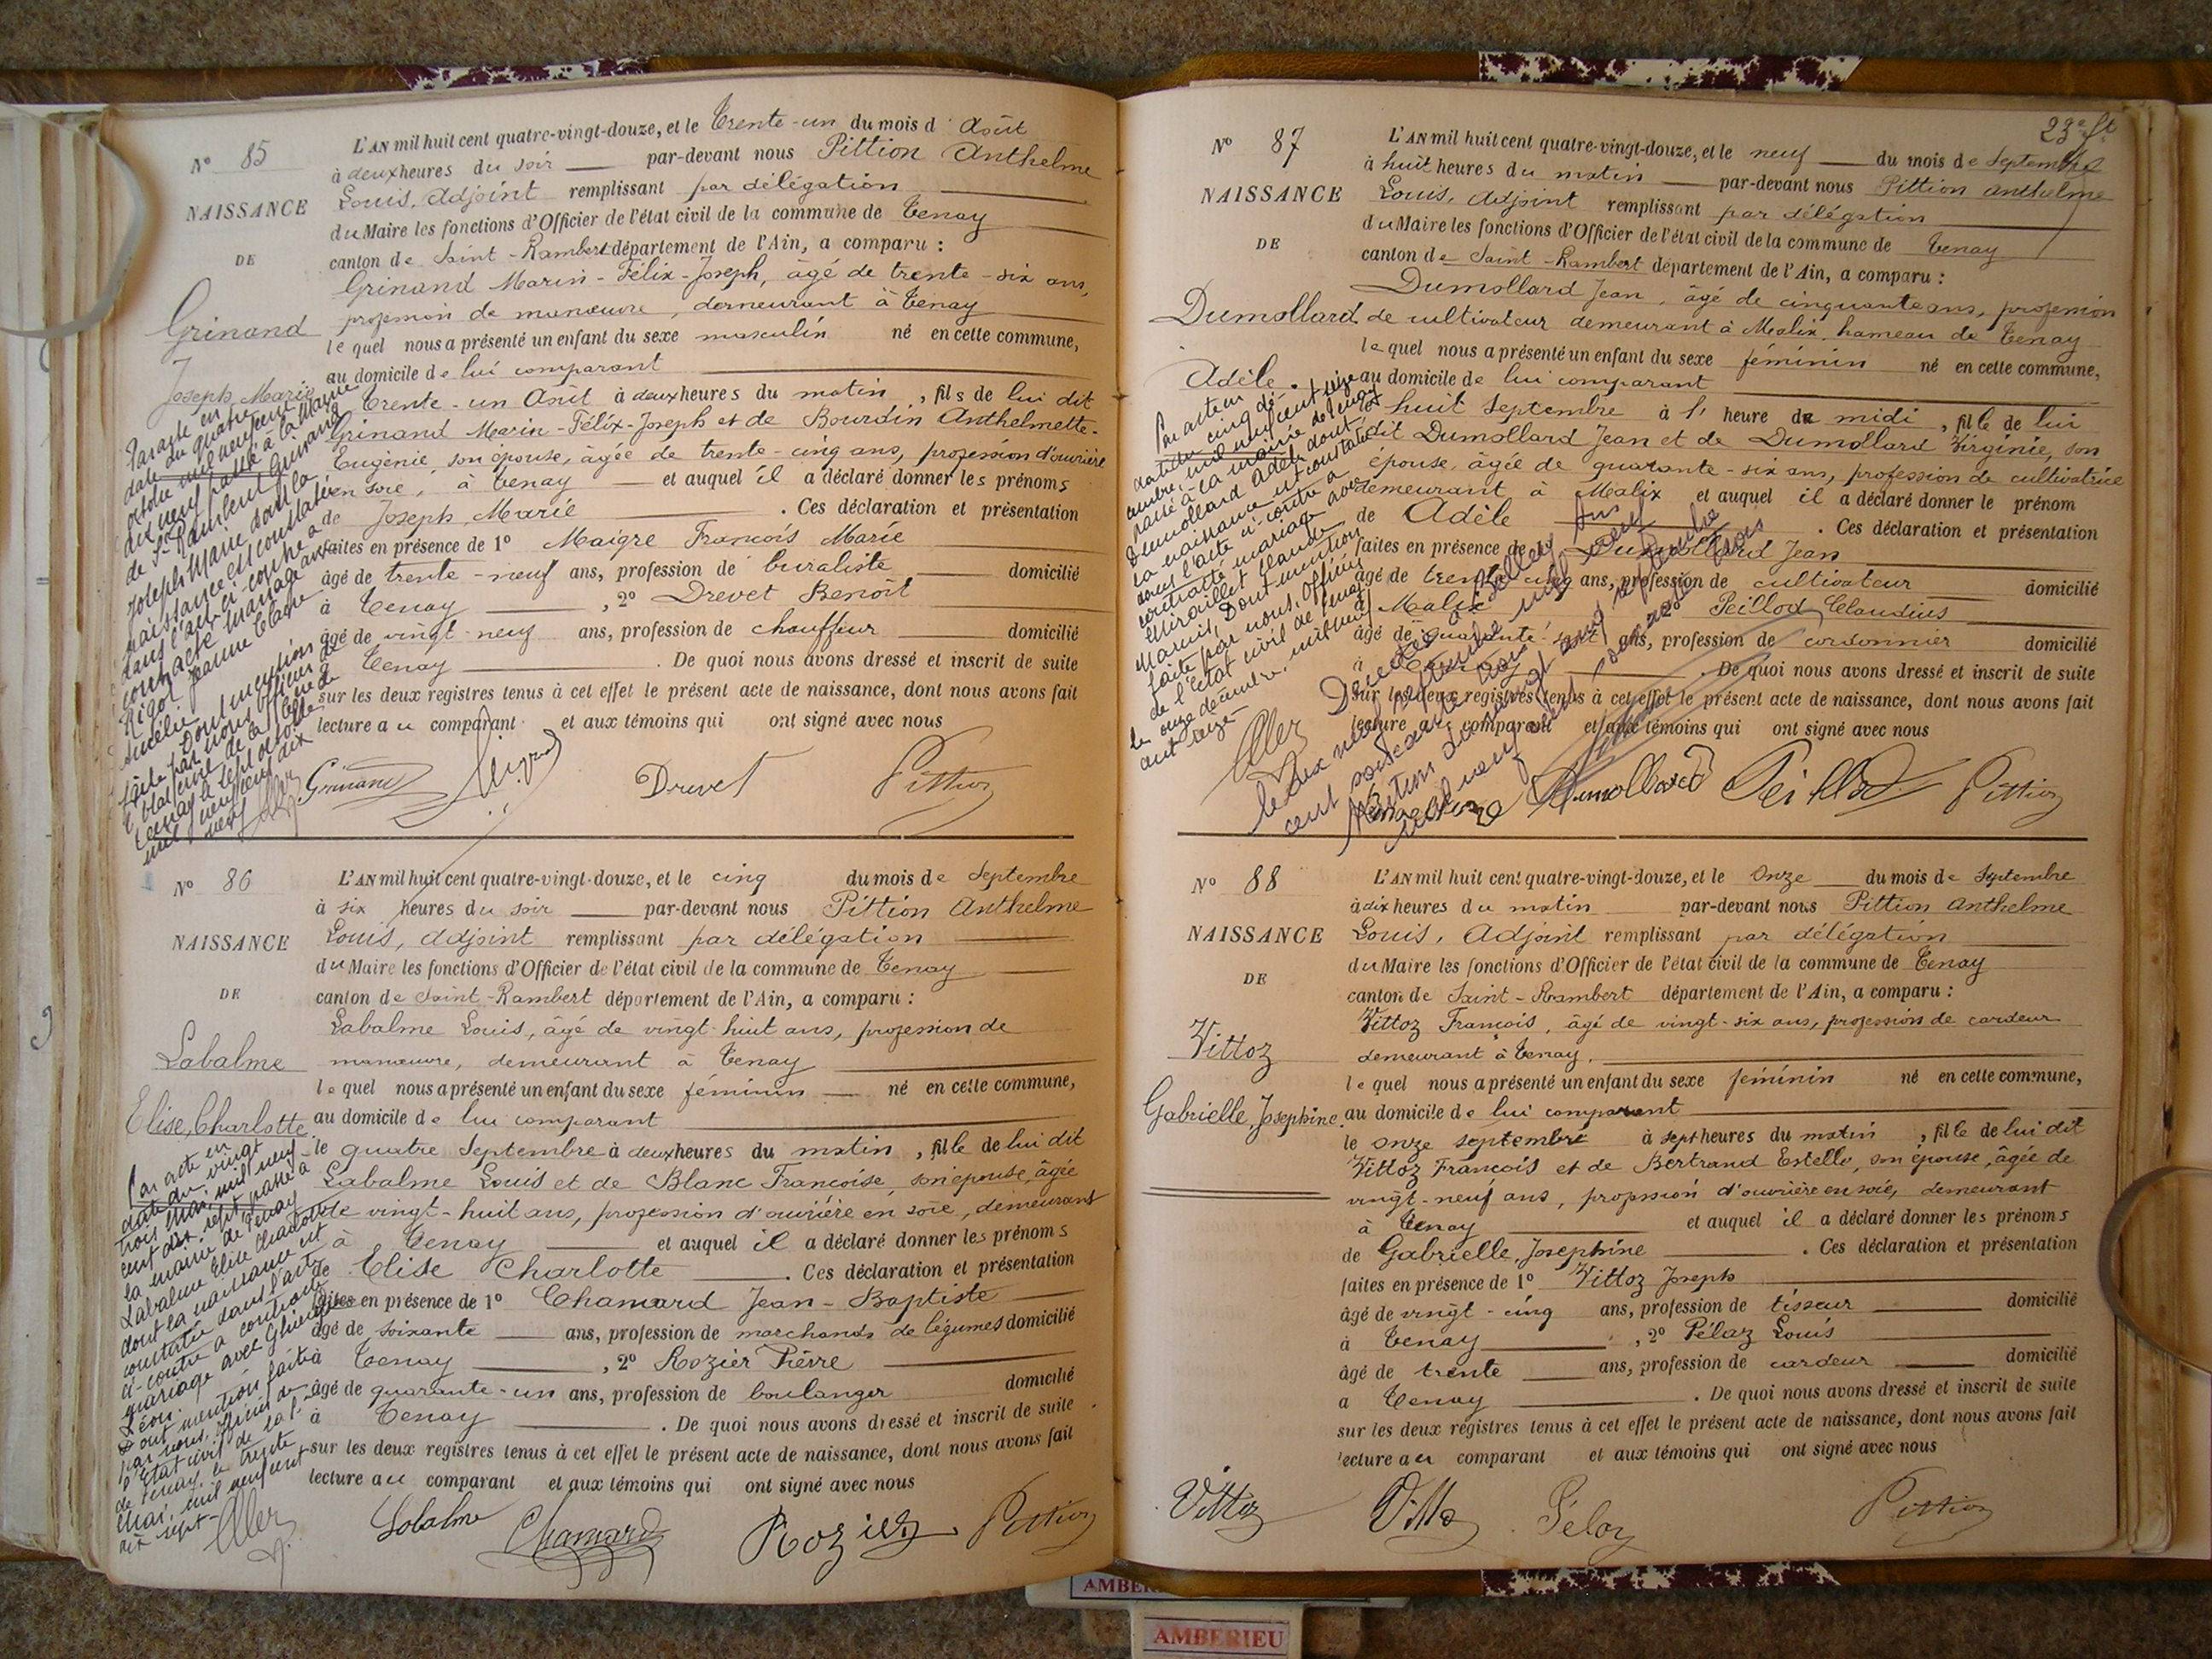 N° 85
NAISSANCE
DE
Grinand
Joseph, Marie
L'AN mil huit cent quatre-vingt-douze, et le trente-un du mois d'Août
à deux heures du soir par-devant nous Pittion Anthelme
Louis, Adjoint remplissant par délégation
du Maire les fonctions d'Officier de l'état civil de la commune de Tenay
canton de Saint-Rambert département de l'Ain, a comparu :
Grinand Marin-Félix-Joseph, âgé de trente-six ans,
profession de manœuvre, demeurant à Tenay
lequel nous a présenté un enfant du sexe masculin né en cette commune,
au domicile de lui comparant
trente-un Août à deux heures du matin, fils de lui dit
Grinand Marin-Félix-Joseph et de Bourdin Anthelmette-
Eugénie, son épouse, âgée de trente-cinq ans, profession d'ouvrière
en soie, à Tenay et auquel il a déclaré donner les prénoms
de Joseph, Marie. Ces déclaration et présentation
faites en présence de 1° Maigre François Marie
âgé de trente-neuf ans, profession de buraliste domicilié
à Tenay, 2° Drevet Benoît
âgé de vingt-neuf ans, profession de chauffeur domicilié
à Tenay. De quoi nous avons dressé et inscrit de suite
sur les deux registres tenus à cet effet le présent acte de naissance, dont nous avons fait
lecture au comparant et aux témoins qui ont signé avec nous
Par acte en
date du quatre
octobre mil neuf cent
dix neuf passé à la Mairie
de St Rambert Grinand
Joseph Marie dont la
naissance est constatée
dans l'acte ci-contre a
contracté mariage avec
Rigot Jeanne Claire
Dont mention
faite par nous, Officier de
l'Etat civil de la
Tenay le sept octobre
mil neuf cent dix
neuf
Grinand Drevet Pittion
N° 86
NAISSANCE
DE
Labalme
Elise, Charlotte
L'AN mil huit cent quatre-vingt-douze, et le cinq du mois de Septembre
à six heures du soir par-devant nous Pittion Anthelme
Louis, Adjoint remplissant par délégation
du Maire les fonctions d'Officier de l'état civil de la commune de Tenay
canton de Saint-Rambert département de l'Ain, a comparu :
Labalme Louis, âgé de vingt-huit ans, profession de
manœuvre, demeurant à Tenay
lequel nous a présenté un enfant du sexe féminin né en cette commune,
au domicile de lui comparant
le quatre Septembre à deux heures du matin, fille de lui dit
Labalme Louis et de Blanc Françoise, son épouse, âgée
de vingt-huit ans, profession d'ouvrière en soie, demeurant
à Tenay et auquel il a déclaré donner les prénoms
de Elise Charlotte. Ces déclaration et présentation
faites en présence de 1° Chamard Jean-Baptiste
âgé de soixante ans, profession de marchand de légumes domicilié
à Tenay, 2° Rozier Pierre
âgé de quarante-un ans, profession de boulanger domicilié
à Tenay. De quoi nous avons dressé et inscrit de suite
sur les deux registres tenus à cet effet le présent acte de naissance, dont nous avons fait
lecture au comparant et aux témoins qui ont signé avec nous
Par acte en
date du vingt
trois Mai mil neuf
cent dix sept passé à
la mairie de Tenay
Labalme Elise Charlotte
dont la naissance est
constatée dans l'acte
ci-contre a contracté
mariage avec
Léon.
Dont mention faite
par nous, Officier de
l'Etat civil de
de Tenay, le trente
Mai, mil neuf cent
dix sept
Labalme Chamard Rozier Pittion
23e ft
N° 87
NAISSANCE
DE
Dumollard
Adèle.
L'AN mil huit cent quatre-vingt-douze, et le neuf du mois de Septembre
à huit heures du matin par-devant nous Pittion Anthelme
Louis, Adjoint remplissant par délégation
du Maire les fonctions d'Officier de l'état civil de la commune de Tenay
canton de Saint-Rambert département de l'Ain, a comparu :
Dumollard Jean, âgé de cinquante ans, profession
de cultivateur demeurant à Malix, hameau de Tenay
lequel nous a présenté un enfant du sexe féminin né en cette commune,
au domicile de lui comparant
huit Septembre à l'heure de midi, fille de lui
dit Dumollard Jean et de Dumollard Virginie, son
épouse, âgée de quarante-six ans, profession de cultivatrice
demeurant à Malix et auquel il a déclaré donner le prénom
de Adèle. Ces déclaration et présentation
faites en présence de Dumollard Jean
âgé de trente-cinq ans, profession de cultivateur domicilié
à Malix Peillod Claudius
âgé de quarante ans, profession de cordonnier domicilié
à Tenay. De quoi nous avons dressé et inscrit de suite
sur les deux registres tenus à cet effet le présent acte de naissance, dont nous avons fait
lecture au comparant et aux témoins qui ont signé avec nous
Par acte en
date du cinq dé-
cembre, mil neuf cent treize
passé à la mairie de Tenay
Dumollard Adèle dont
la naissance est constatée
dans l'acte ci-contre a
contracté mariage avec
Mirouillet Claude
Marius, Dont mention
faite par nous, Officier
de l'Etat civil de Tenay
le onze décembre, mil neuf
cent treize
Décédée à Belley Ain
le deux septembre mil neuf
cent soixante
Mention du vingt cinq septembre
mil neuf cent soixante
Dumollard Peillod Pittion
N° 88
NAISSANCE
DE
Vittoz
Gabrielle, Josephine.
L'AN mil huit cent quatre-vingt-douze, et le onze du mois de Septembre
à dix heures du matin par-devant nous Pittion Anthelme
Louis, Adjoint remplissant par délégation
du Maire les fonctions d'Officier de l'état civil de la commune de Tenay
canton de Saint-Rambert département de l'Ain, a comparu :
Vittoz François, âgé de vingt-six ans, profession de cardeur
demeurant à Tenay.
lequel nous a présenté un enfant du sexe féminin né en cette commune,
au domicile de lui comparant
le onze septembre à sept heures du matin, fille de lui dit
Vittoz François et de Bertrand Estelle, son épouse, âgée de
vingt-neuf ans, profession d'ouvrière en soie, demeurant
à Tenay et auquel il a déclaré donner les prénoms
de Gabrielle, Josephine. Ces déclaration et présentation
faites en présence de 1° Vittoz Joseph
âgé de vingt-cinq ans, profession de tisseur domicilié
à Tenay, 2° Pélaz Louis
âgé de trente ans, profession de cardeur domicilié
à Tenay. De quoi nous avons dressé et inscrit de suite
sur les deux registres tenus à cet effet le présent acte de naissance, dont nous avons fait
lecture au comparant et aux témoins qui ont signé avec nous
Vittoz Vittoz Pélaz Pittion
AMBERIEU